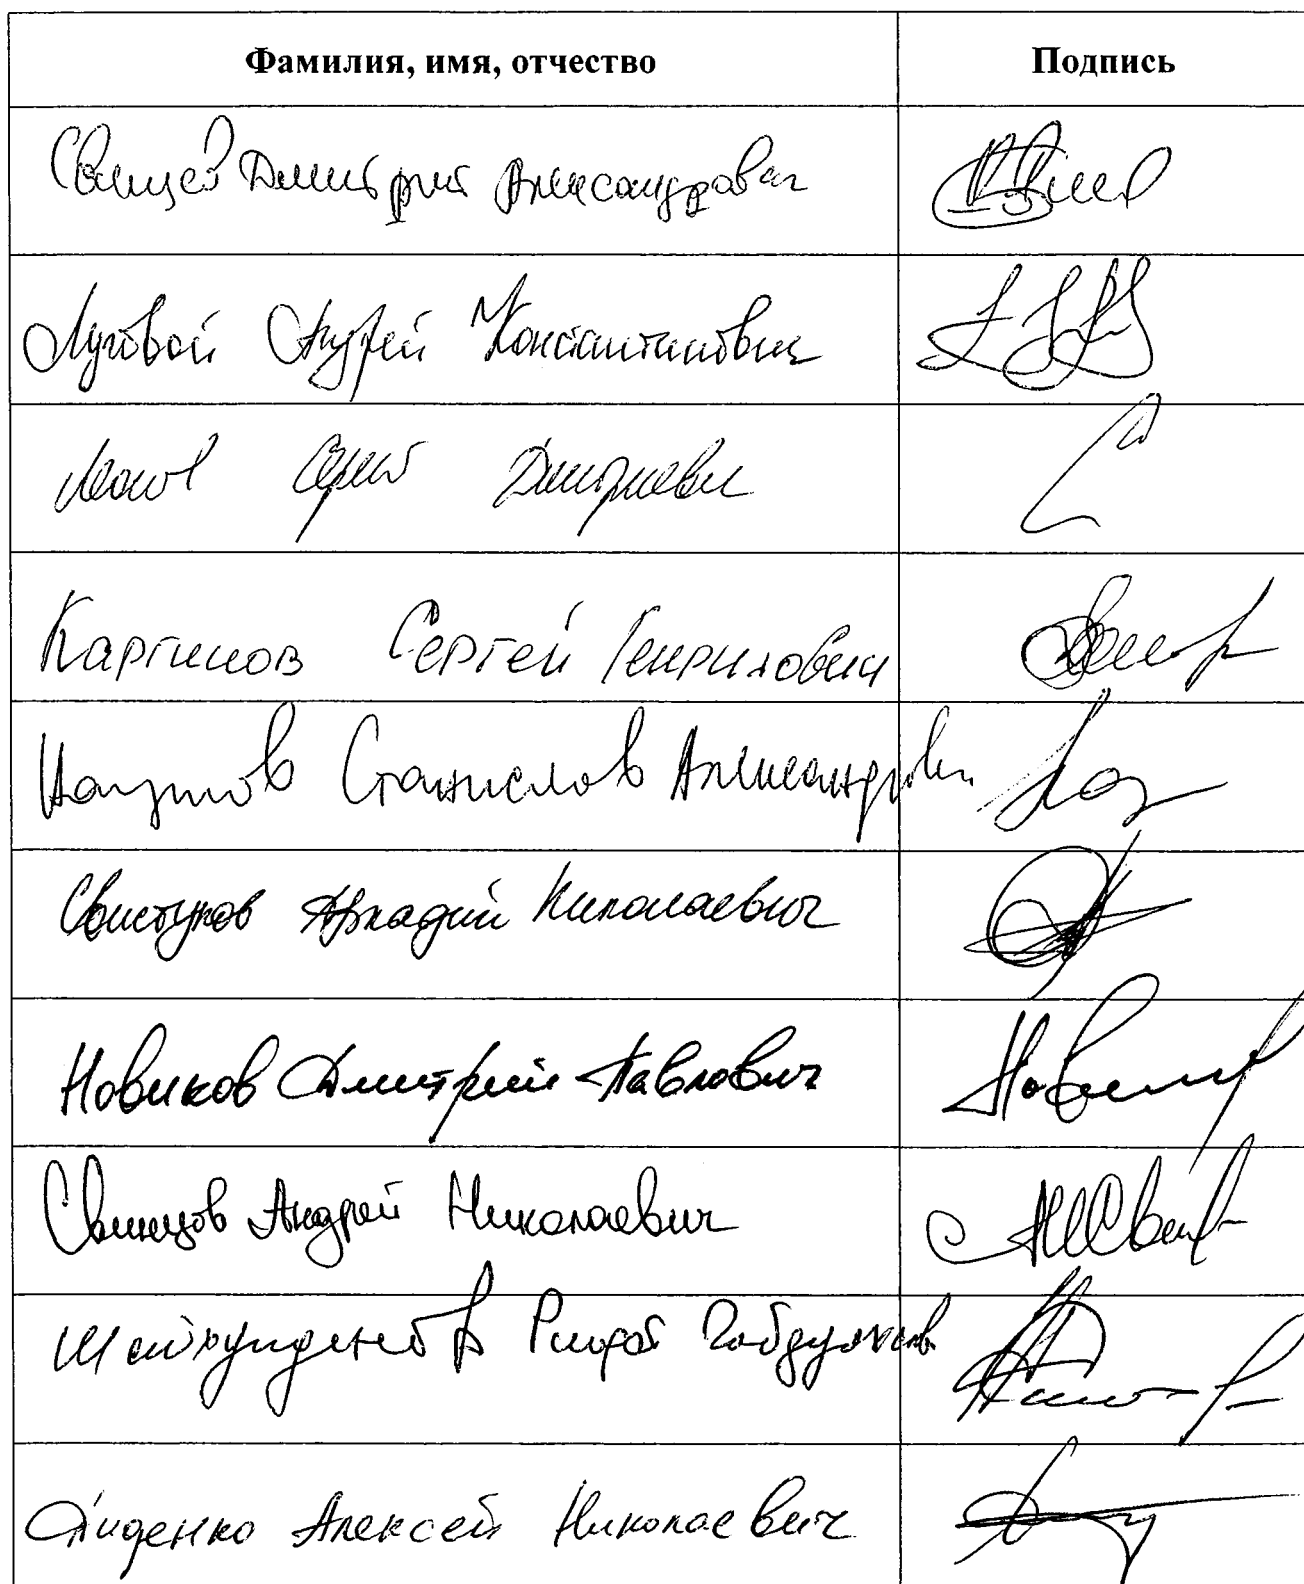 Фамилия, имя, отчество Подпись
Дмитрий Александрович
Луговой Андрей Константинович
Сергей Дмитриевич
Каргинов Сергей Генрихович
Наумов Станислав Александрович
Свистунов Аркадий Николаевич
Новиков Дмитрий Павлович
Свинцов Андрей Николаевич
Шайхутдинов
Диденко Алексей Николаевич